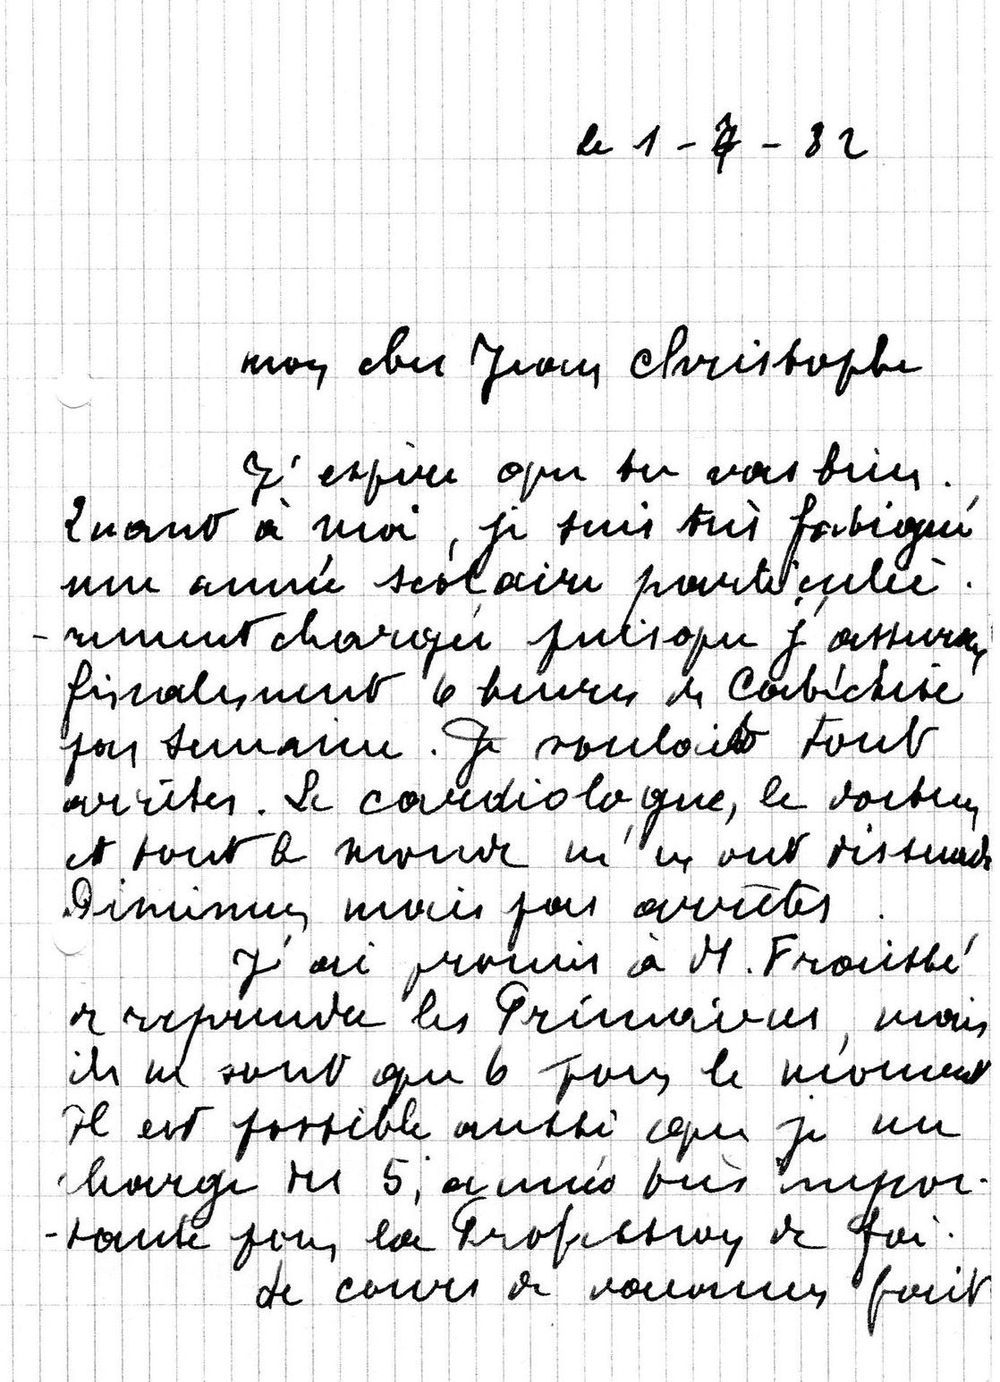 le 1 - 7 - 82
mon cher Jean Christophe
J'espère que tu vas bien.
Quant à moi, je suis très fatigué
une année scolaire particuliè-
- rement chargée puisque j'assurais
finalement 6 heures de Catéchèse
par semaine. Je voulais tout
arrêter. Le cardiologue, le docteur
et tout le monde m'en ont dissuadé
Diminuer mais pas arrêter.
J'ai promis à M.
de reprendre les Primaires, mais
ils ne sont que 6 pour le moment
Il est possible aussi que je me
charge des 5, année très impor-
- tante pour la Profession de foi.
Le cours de vacances fait